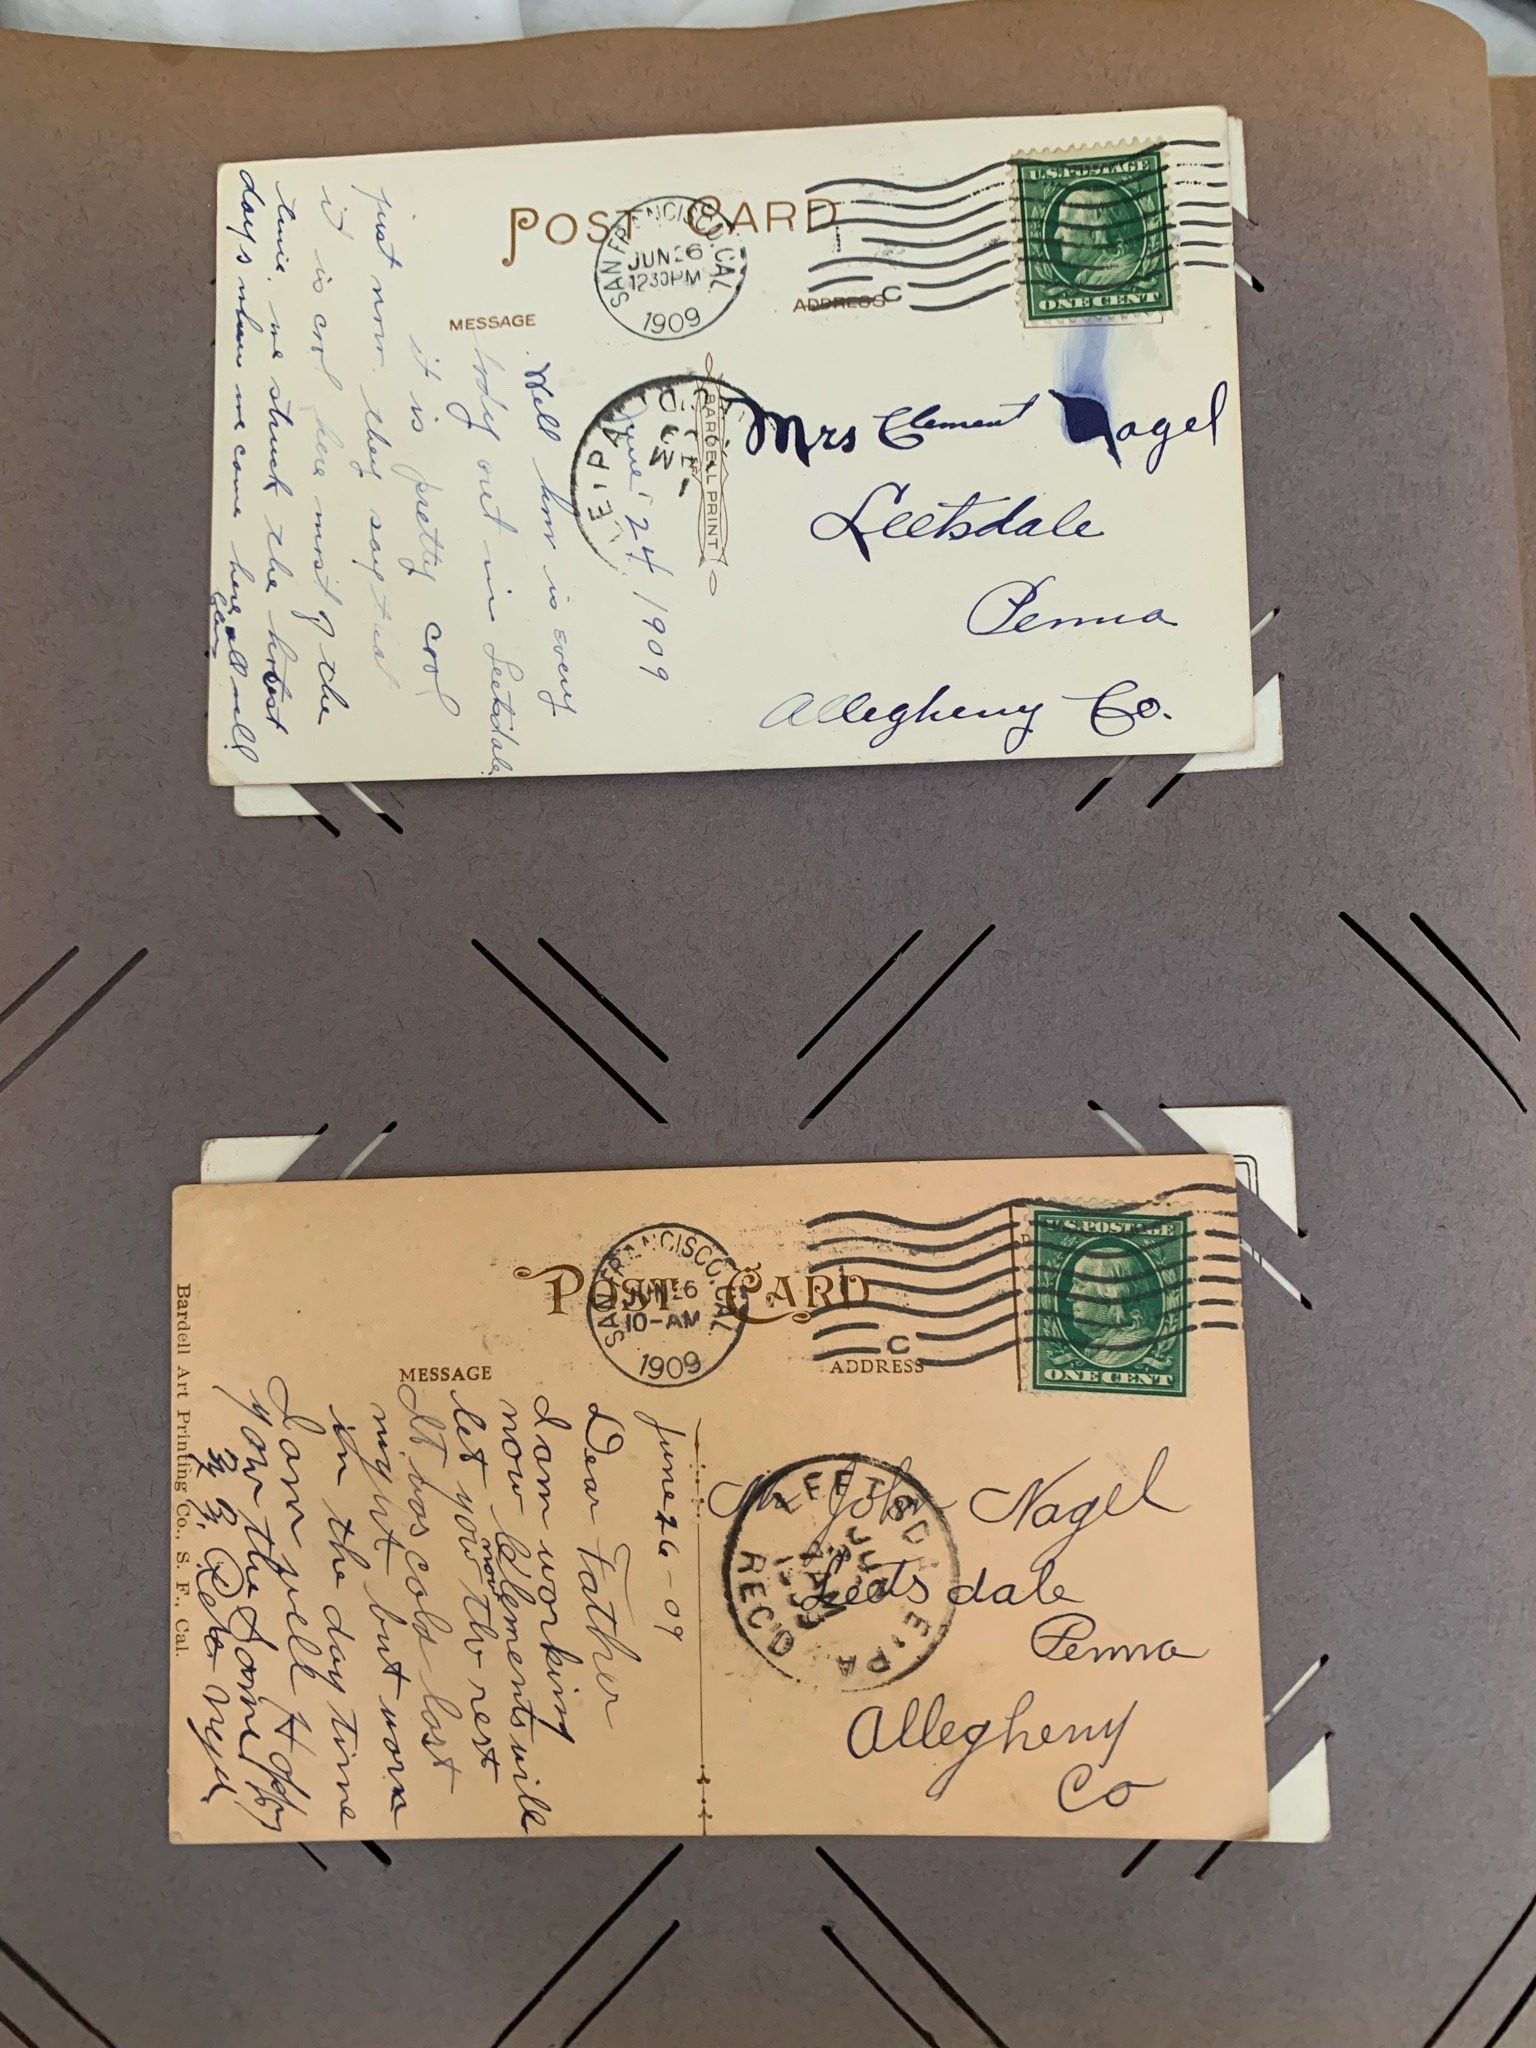 POST CARD
SAN FRANCISCO, CAL.
JUN 26
12 30 PM
1909
C
U.S. POSTAGE
ONE CENT
MESSAGE
ADDRESS
BARDELL PRINT
E, PA
Mrs Clement Nagel
Leetsdale
Penna
Allegheny Co.
June 24 1909
Well how is every
body out in Leetsdale
it is pretty cool
just now. they say that
it is cool here most of the
time. we struck the hottest
days when we came here all well
POST CARD
SAN FRANCISCO, CAL.
JUN 26
10-AM
1909
C
U.S. POSTAGE
ONE CENT
MESSAGE
ADDRESS
LEETSDALE, PA
REC'D
1909
Mr John Nagel
Leetsdale
Penna
Allegheny
Co
June 26-09
Dear Father
I am working
now Clements will
let you now the rest
It was cold last
night but worm
in the day time
I am well Hoping
you the same
Bardell Art Printing Co., S. F., Cal.